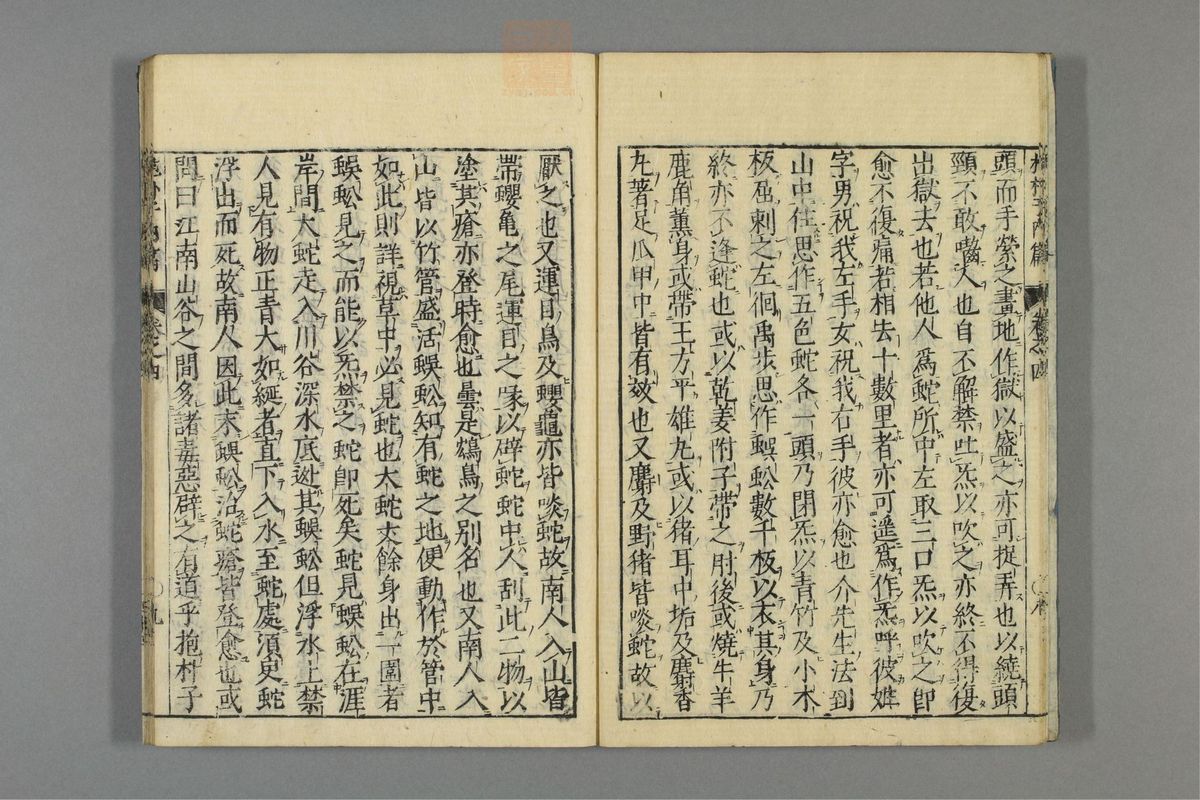 頭而手縈之畫地作獄以盛之亦可捉弄也以繞頭
頸不敢嚙人也自不解禁吐炁以吹之亦終不得復
出獄去也若他人爲蛇所中左取三口炁以吹之卽
愈不復痛若相去十數里者亦可遥爲作炁呼彼姓
字男祝我左手女祝我右手彼亦愈也介先生法到
山中住思作五色蛇各一頭乃閉炁以青竹及小木
板屈刺之左徊禹步思作蜈蚣數千板以衣其身乃
終亦不逢蛇也或以乾姜附子帶之肘後或燒牛羊
鹿角薰身或帶王方平雄丸或以猪耳中垢及麝香
丸著足爪甲中皆有效也又麝及野猪皆啖蛇故以
厭之也又運日鳥及蠳龜亦皆啖蛇故南人入山皆
帶蠳亀之尾運日之喙以辟蛇蛇中人刮此二物以
塗其瘡亦登時愈也曇是鴆鳥之别名也又南人入
山皆以竹管盛活蜈蚣知有蛇之地便動作於管中
如此則詳視草中必見蛇也大蛇丈餘身出一圍者
蜈蚣見之而能以炁禁之蛇卽死矣蛇見蜈蚣在涯
岸間大蛇走入川谷深水底逃其蜈蚣但浮水上禁
人見有物正青大如綖者直下入水至蛇處須臾蛇
浮出而死故南人因此末蜈蚣治蛇瘡皆登愈也或
問曰江南山谷之間多諸毒惡辟之有道乎抱朴子
卷之四
九